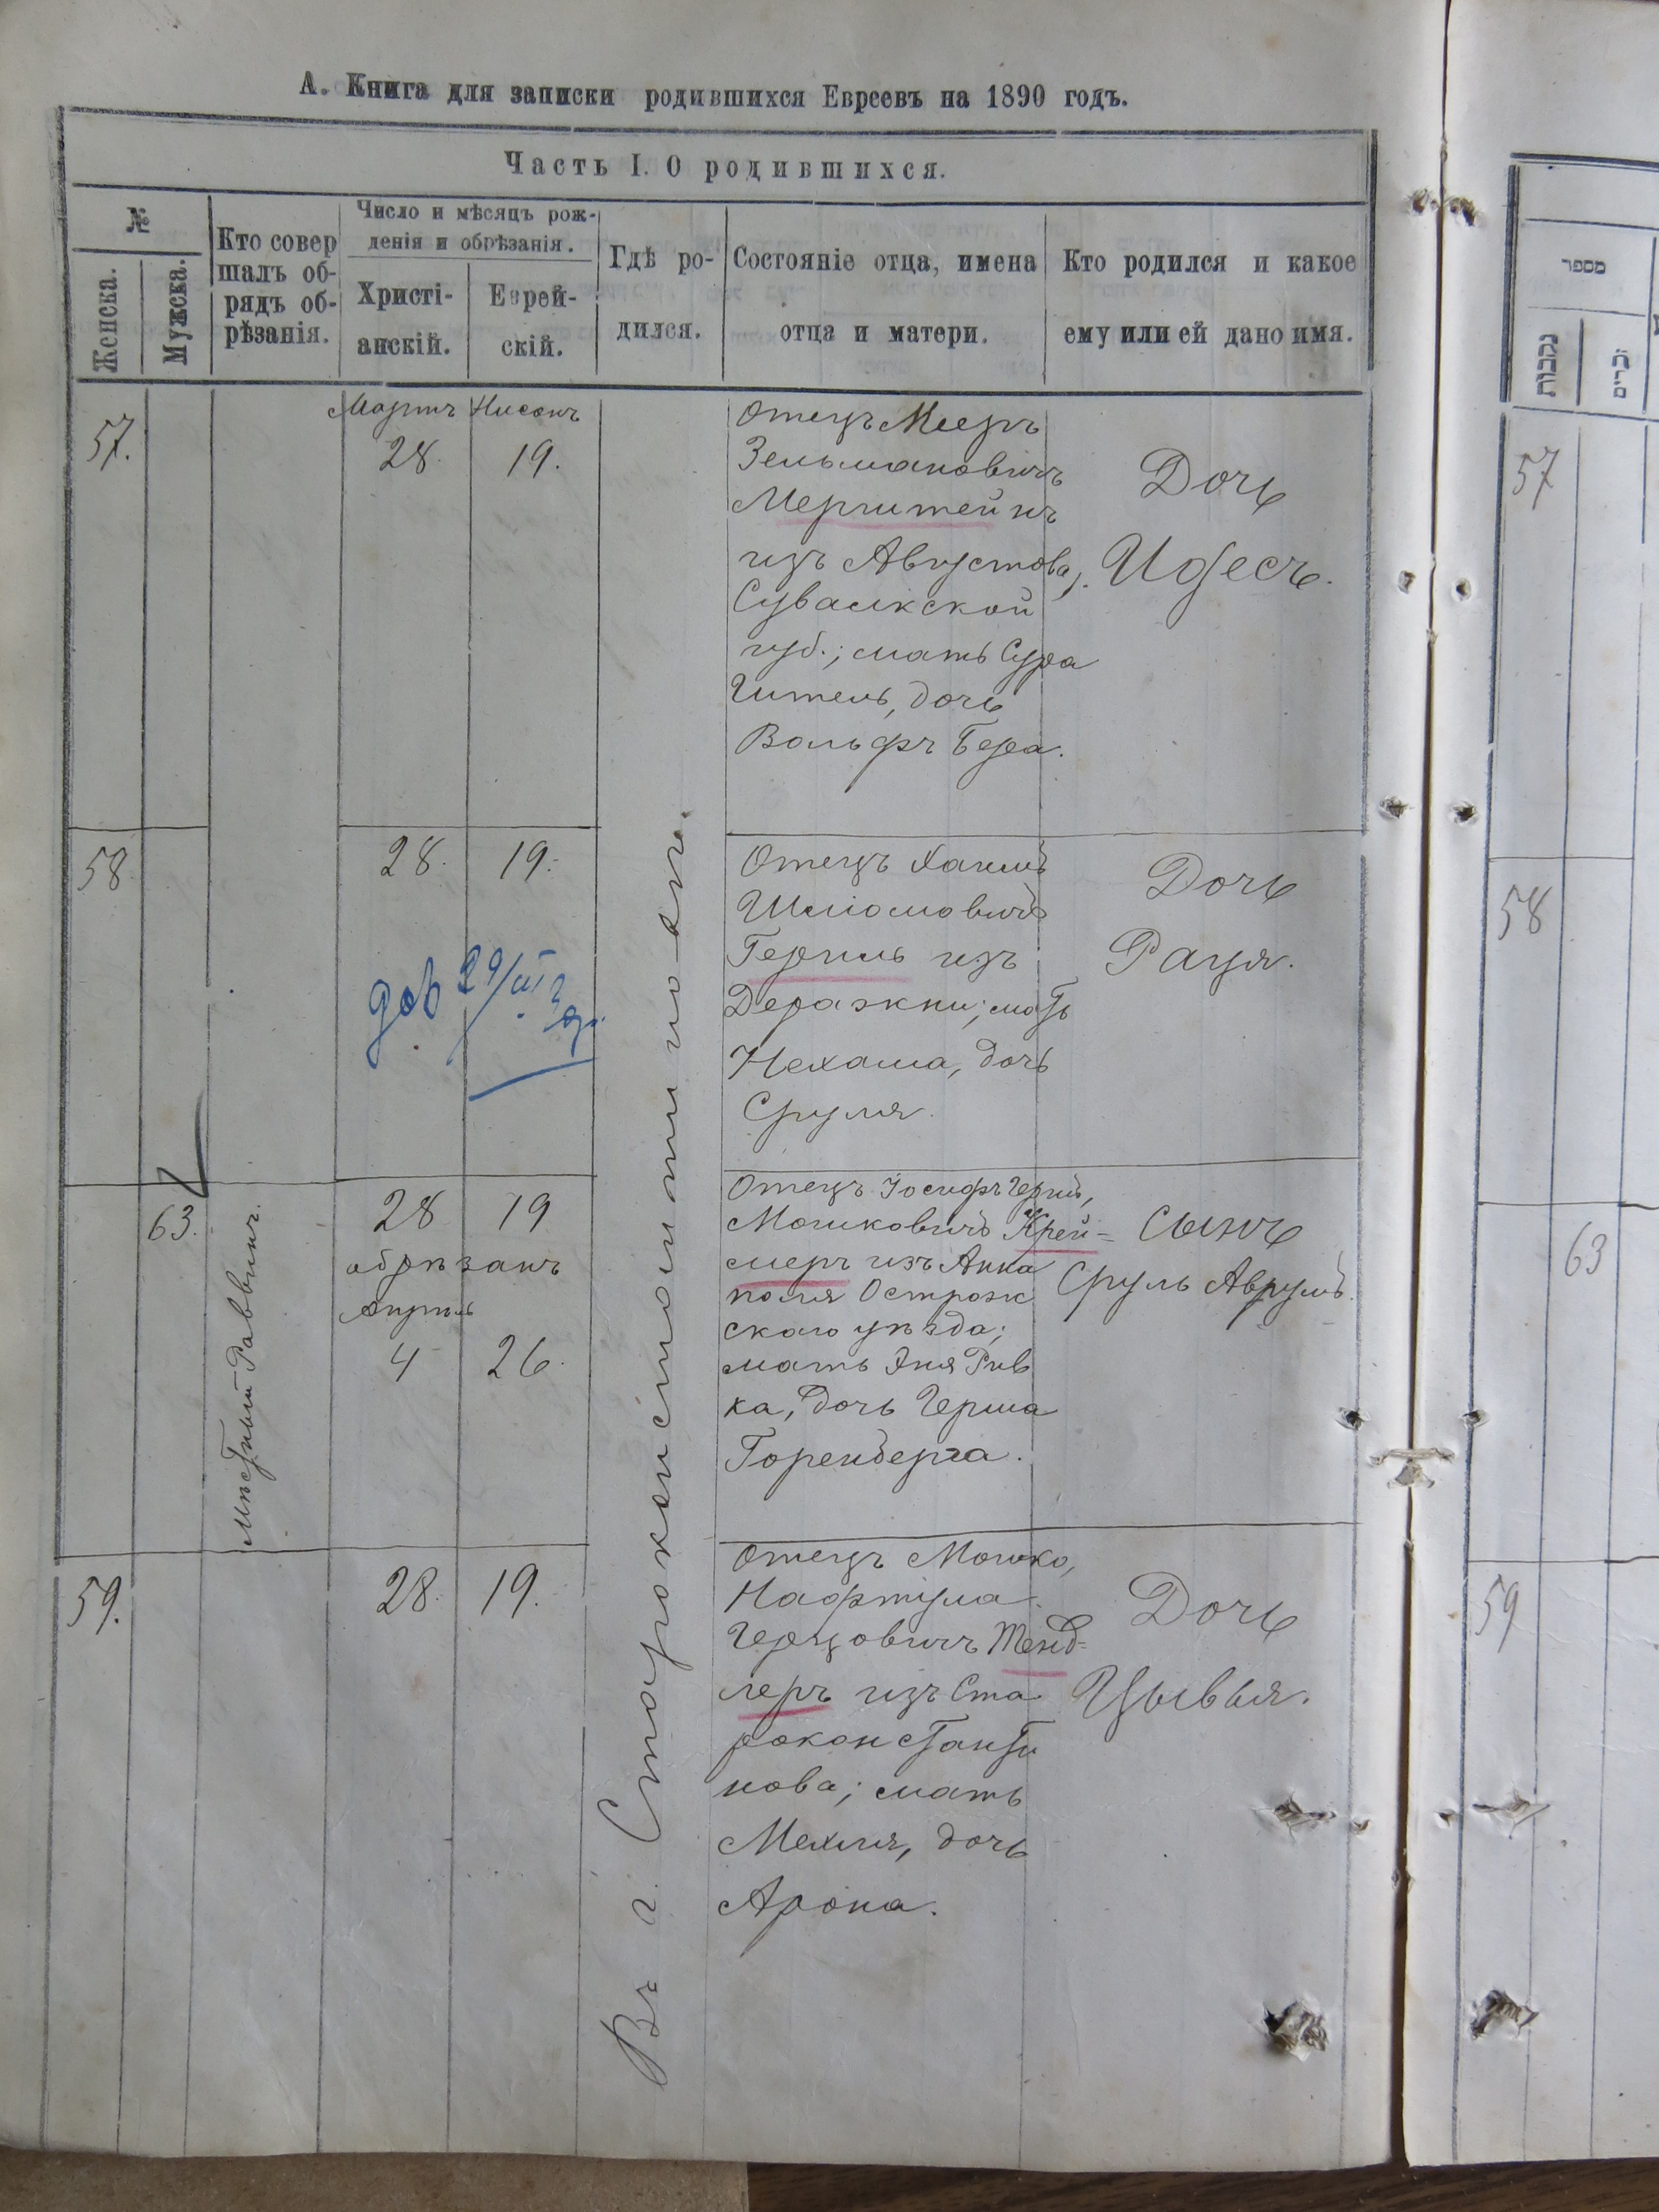 А. Книга для записки родившихся Евреевъ на 1890 годъ.
Часть I. О родившихся.
№
Женска.
Мужска.
Кто совер
шалъ об-
рядъ об-
рѣзанія.
Число и мѣсяцъ рож-
денія и обрѣзанія.
Христі-
анскій.
Еврей-
скій.
Гдѣ ро-
дился.
Состояніе отца, имена
отца и матери.
Кто родился и какое
ему или ей дано имя.
Въ г. Староконстантиновѣ.
57.
Мартъ Нисонъ
28. 19.
Отецъ Мееръ
Зельмановичъ
Мерштейнъ
изъ Августова,
Сувалкской
губ.; мать Сура
Гитель, дочь
Вольфъ Бера.
Дочь
Идесъ.
58
28. 19.
29/III
Отецъ Хаимъ
Шліомовичъ
из
Деражни; мать
Нехама, дочь
Сруля.
Дочь
Раця.
63.
Мѣстный Раввинъ.
28 19
обрѣзанъ
Апрѣль
4 26.
Отецъ Іосифъ Герш,
Мошковичъ Крей-
меръ изъ Анна
поля Острож
скаго уѣзда;
мать Эня Рив
ка, дочь Герша
Горенберга.
Сынъ
Сруль Аврумъ.
59.
28. 19.
Отецъ Мошко,
Нафтула
Герцовичъ Тенд-
леръ изъ Ста
роконстанти
нова; мать
Мехля, дочь
Арона.
Дочь
Цывья.
מספר
נקבות
זכרים
57
58
63
59